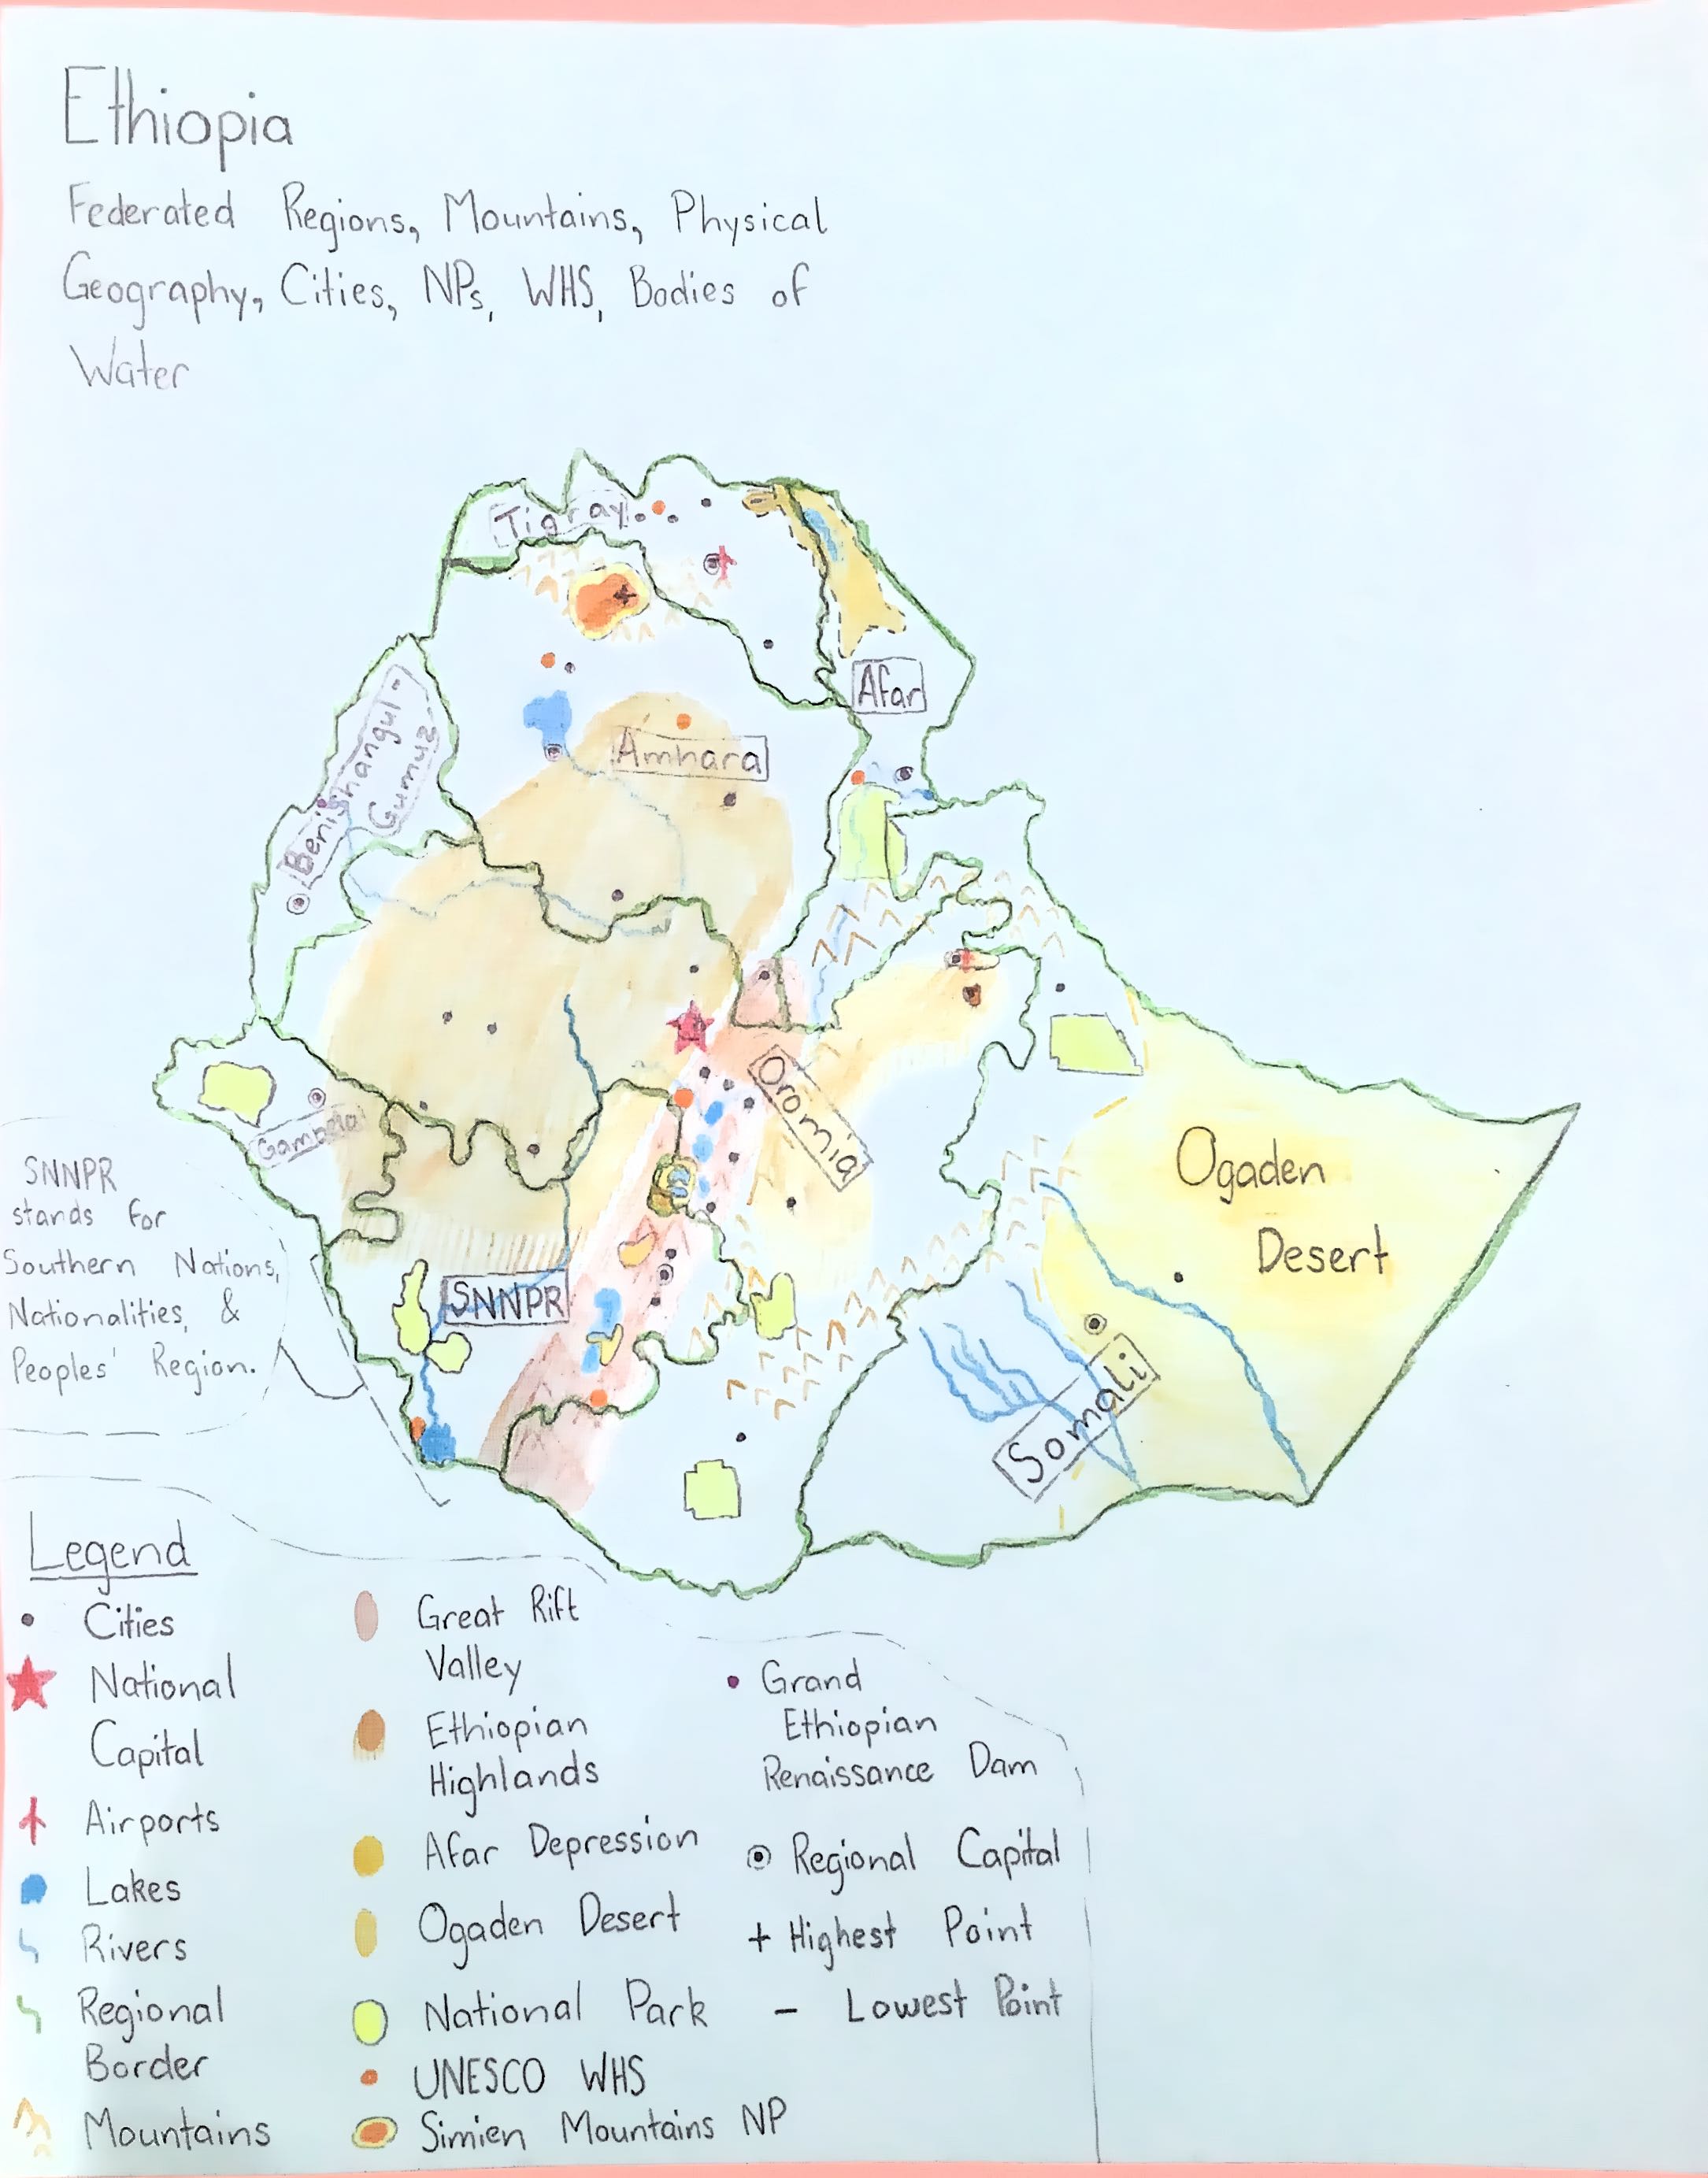 Ethiopia
Federated Regions, Mountains, Physical
Geography, Cities, NPs, WHS, Bodies of
Water
Tigray
Afar
Amhara
Benishangul
Gumuz
Oromia
Gambela
SNNPR
stands for
Southern Nations,
Nationalities, &
Peoples' Region.
Ogaden
Desert
SNNPR
Somali
Legend
Cities
National
Capital
Airports
Lakes
Rivers
Regional
Border
Mountains
Great Rift
Valley
Ethiopian
Highlands
Afar Depression
Ogaden Desert
National Park
UNESCO WHS
Simien Mountains NP
Grand
Ethiopian
Renaissance Dam
Regional Capital
+ Highest Point
- Lowest Point